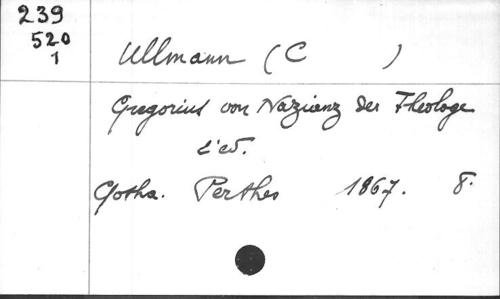 239
520
1
Ullmann (C )
Gregorius von Nazianz der Theologe
2' ed.
Gotha. Perthes 1867. 8.